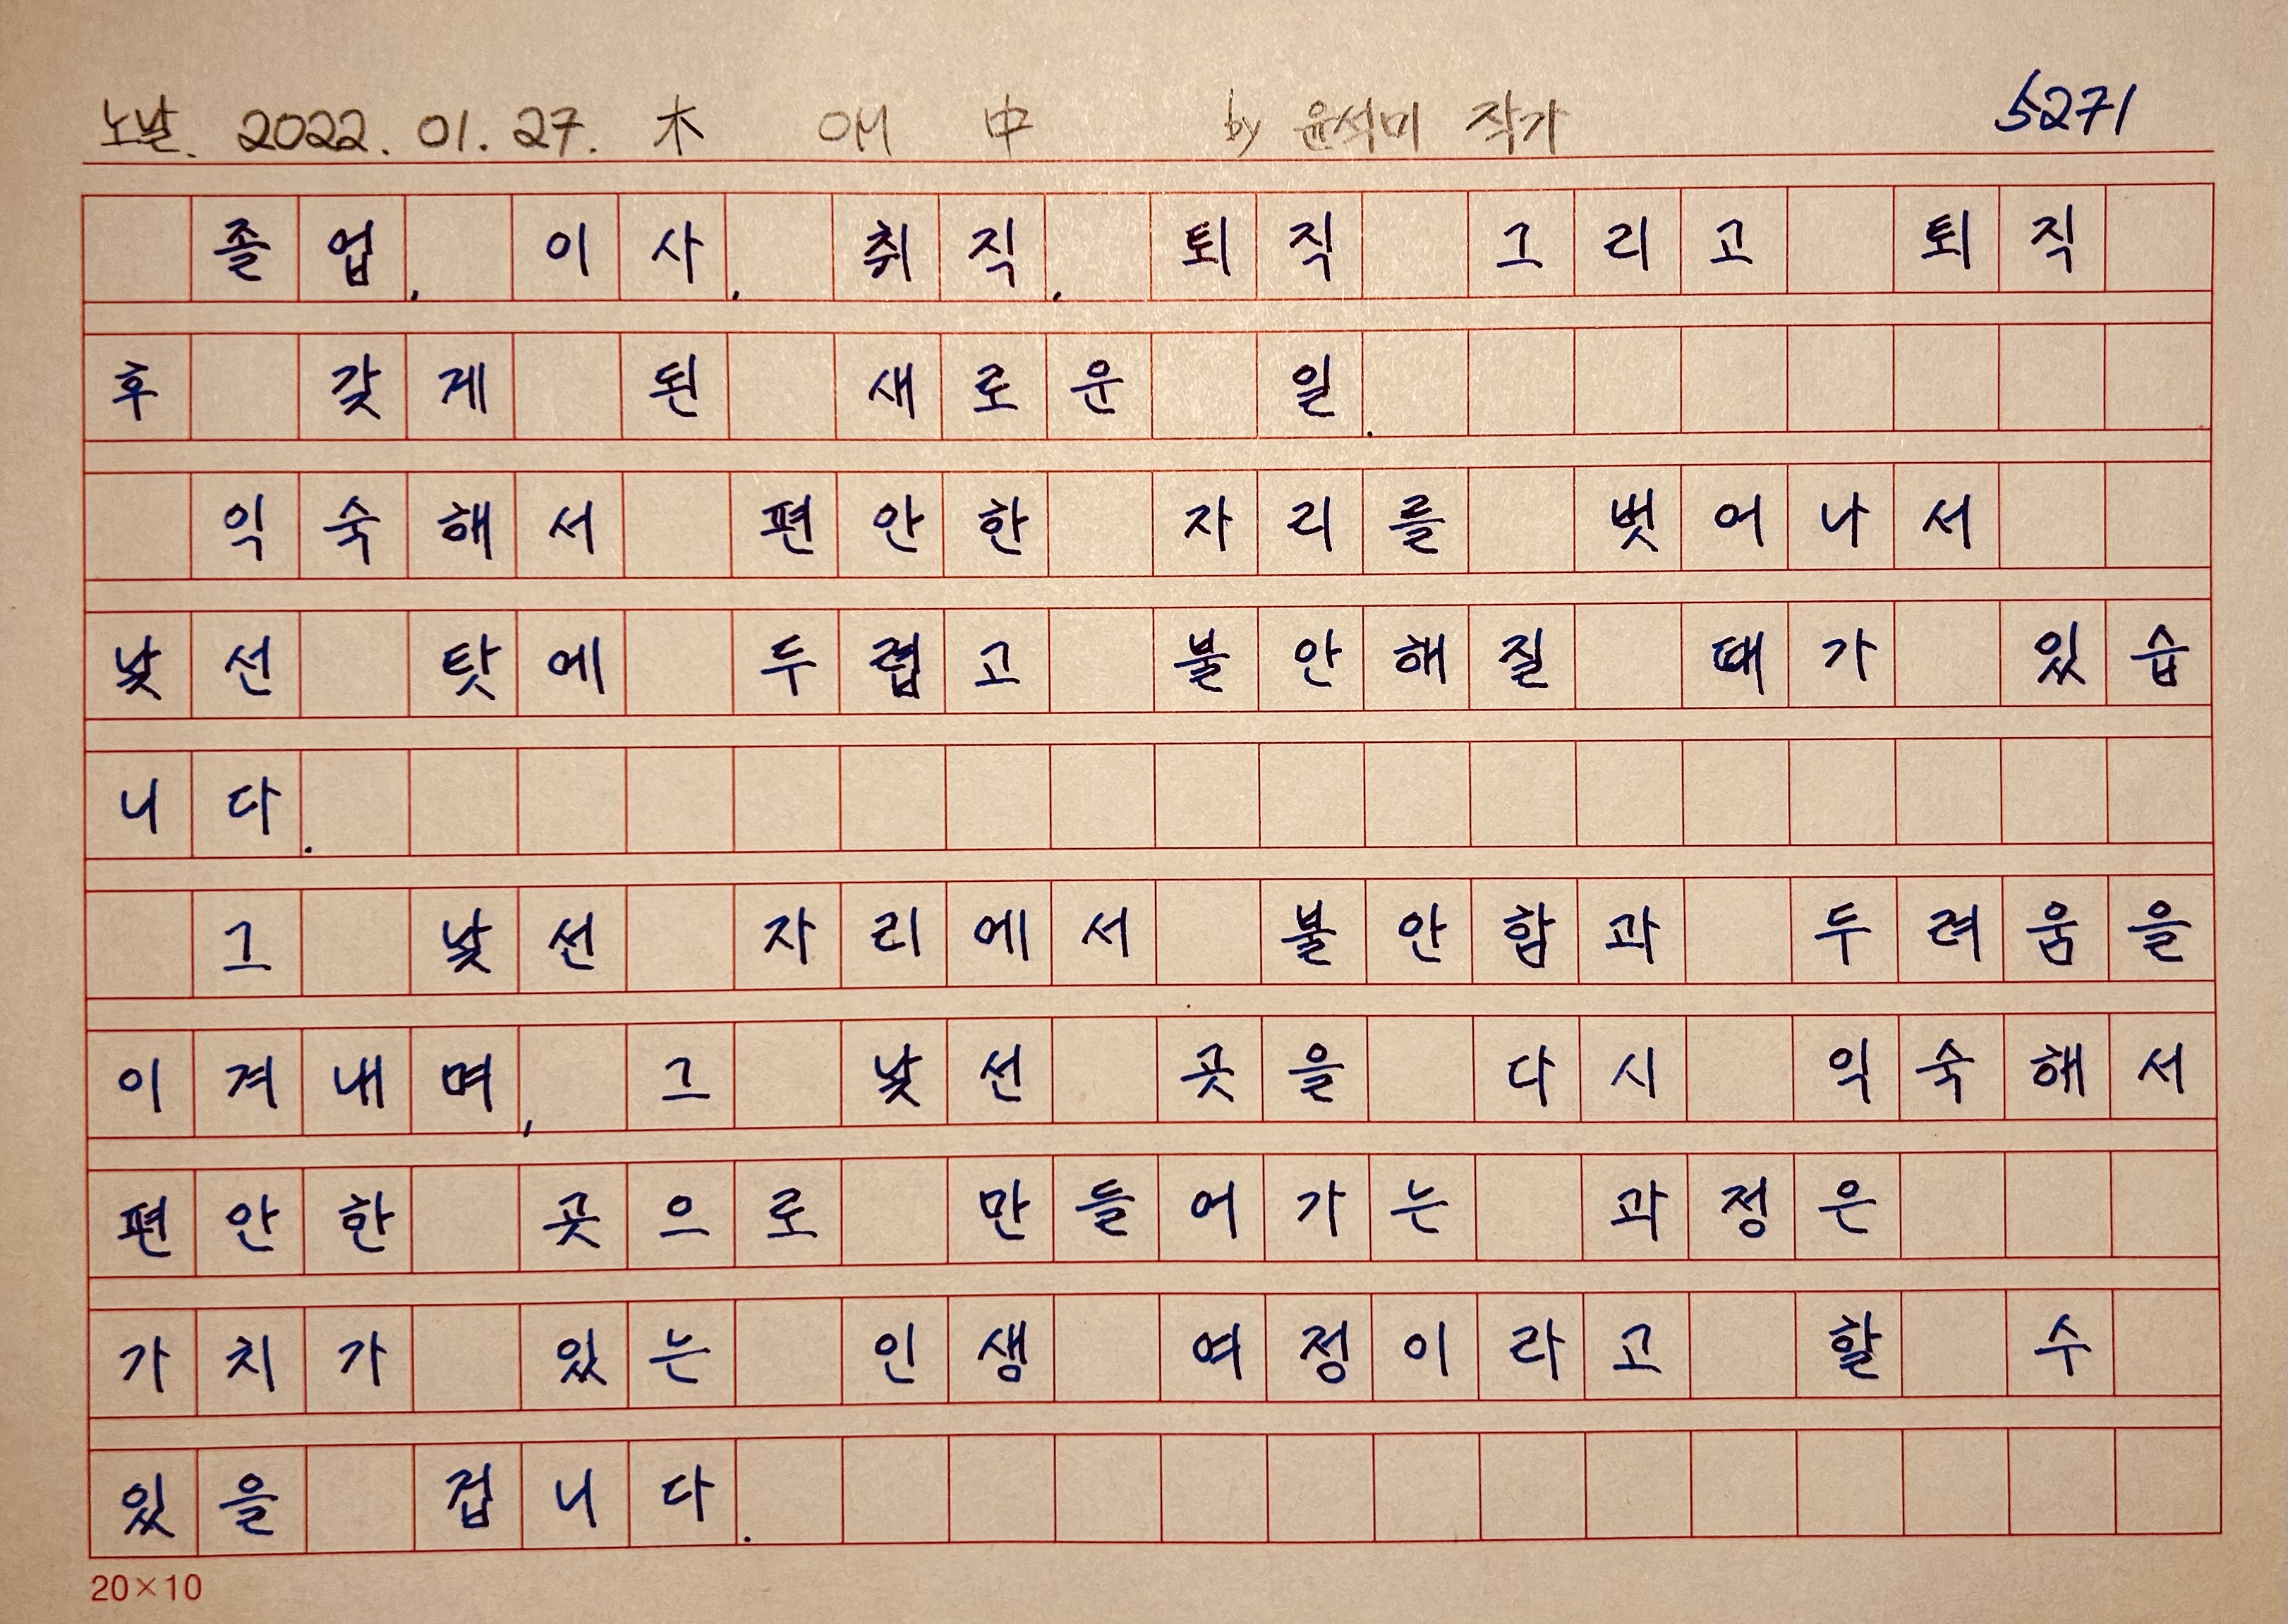 노날. 2022. 01. 27. 木 애 中 by 윤석미 작가 5271
졸업, 이사, 취직, 퇴직 그리고 퇴직
후 갖게 된 새로운 일.
익숙해서 편안한 자리를 벗어나서
낯선 탓에 두렵고 불안해질 때가 있습
니다.
그 낯선 자리에서 불안함과 두려움을
이겨내며, 그 낯선 곳을 다시 익숙해서
편안한 곳으로 만들어가는 과정은
가치가 있는 인생 여정이라고 할 수
있을 겁니다.
20×10